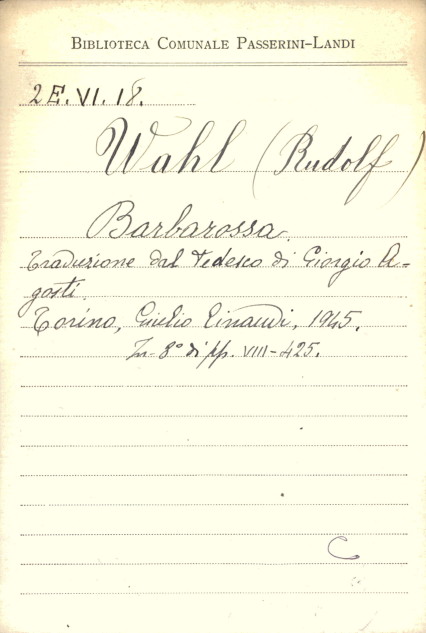 BIBLIOTECA COMUNALE PASSERINI-LANDI
2E. VI. 18.
Wahl (Rudolf)
Barbarossa.
Traduzione dal tedesco di Giorgio A-
gosti.
Torino, Giulio Einaudi, 1945.
In-8° di pp. VIII-425.
C